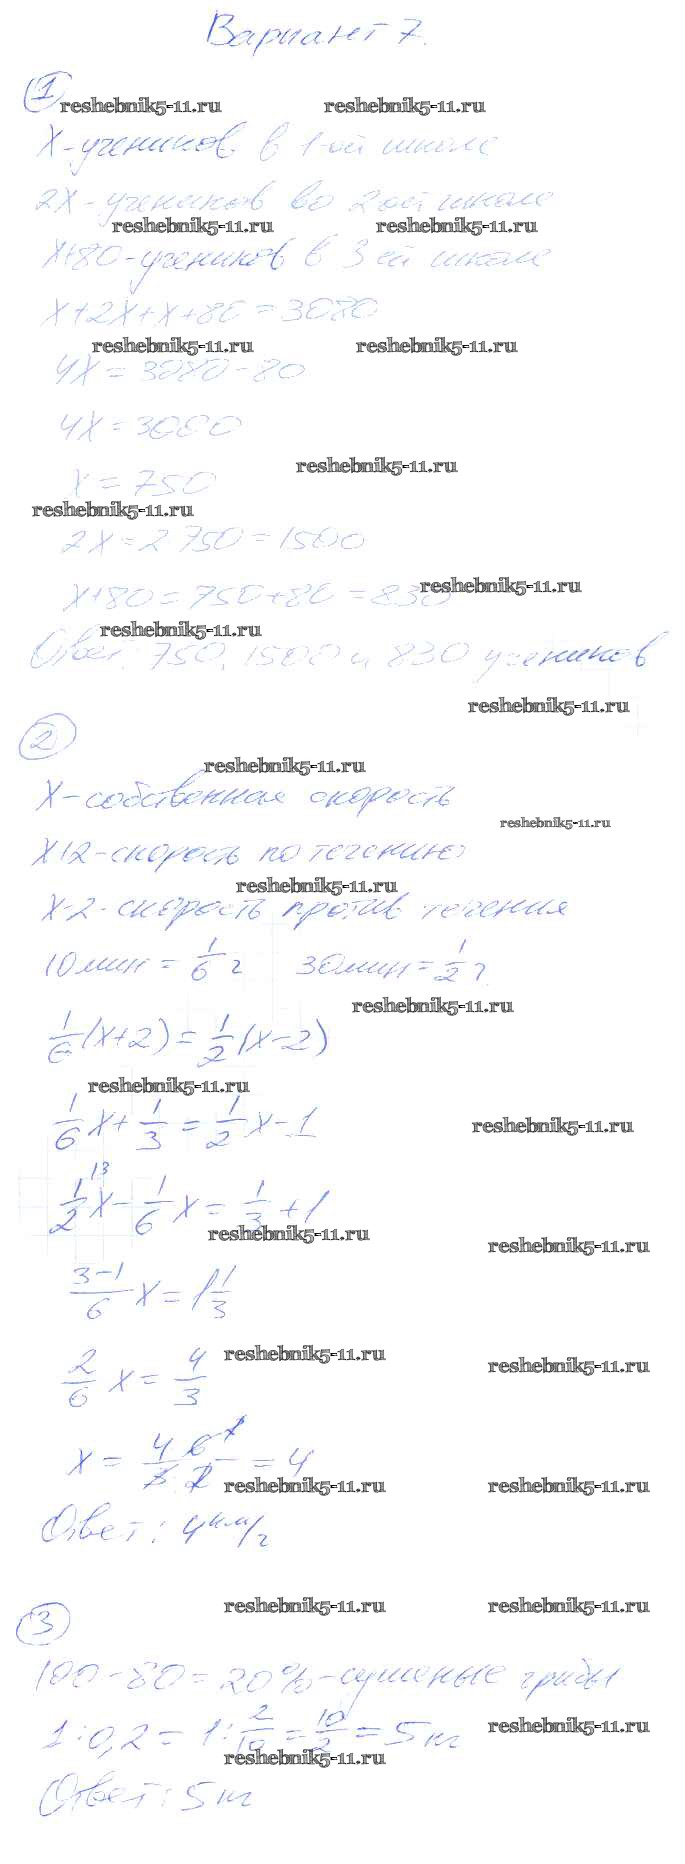 Вариант 7.
1
reshebnik5-11.ru reshebnik5-11.ru
x - учеников в 1-ой школе
2x - учеников во 2 ой школе
reshebnik5-11.ru reshebnik5-11.ru
x+80 - учеников в 3 ей школе
x+2x+x+80=3080
reshebnik5-11.ru reshebnik5-11.ru
4x=3080-80
4x=3000
reshebnik5-11.ru
x=750
reshebnik5-11.ru
2x=2·750=1500
reshebnik5-11.ru
x+80=750+80=830
reshebnik5-11.ru
Ответ: 750, 1500 и 830 учеников
reshebnik5-11.ru
2
reshebnik5-11.ru
x - собственная скорость
reshebnik5-11.ru
x+2 - скорость по течению
reshebnik5-11.ru
x-2 - скорость против течения
10 мин = 1/6 ч 30 мин = 1/2 ч
reshebnik5-11.ru
1/6(x+2)=1/2(x-2)
reshebnik5-11.ru
1/6x+1/3=1/2x-1
reshebnik5-11.ru
1/2 \3 x-1/6x=1/3+1
reshebnik5-11.ru
reshebnik5-11.ru
3-1/6 x=1 1/3
reshebnik5-11.ru reshebnik5-11.ru
2/6 x=4/3
x= 4·6/3·2 =4
reshebnik5-11.ru reshebnik5-11.ru
Ответ: 4 км/ч
reshebnik5-11.ru reshebnik5-11.ru
3
100-80=20% - сушеные грибы
reshebnik5-11.ru
1:0,2=1:2/10=10/2=5 кг
reshebnik5-11.ru
Ответ: 5 кг